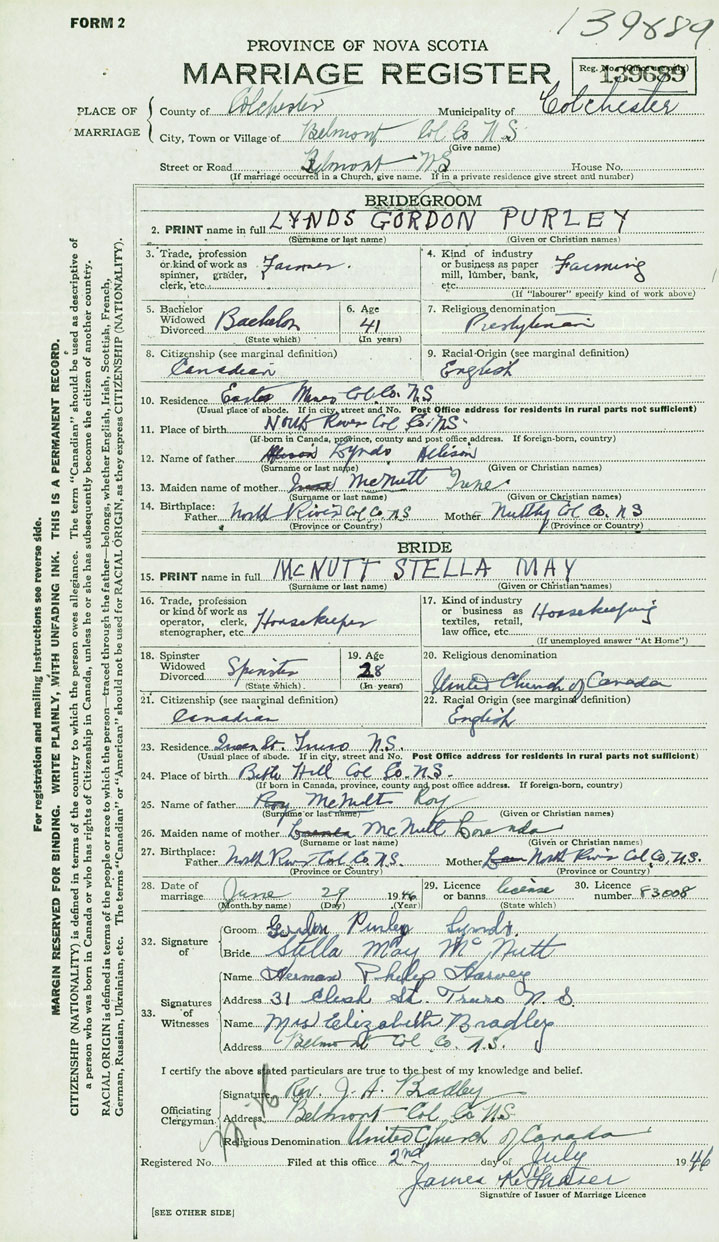 FORM 2
139689
PROVINCE OF NOVA SCOTIA
MARRIAGE REGISTER
Reg. No. (Office use only)
139689
PLACE OF MARRIAGE
County of Colchester Municipality of Colchester
City, Town or Village of Belmont Col Co N.S
(Give name)
Street or Road Belmont NS House No.
(If marriage occurred in a Church, give name. If in a private residence give street and number)
BRIDEGROOM
2. PRINT name in full LYNDS GORDON PURLEY
(Surname or last name) (Given or Christian names)
3. Trade, profession or kind of work as spinner, grader, clerk, etc. Farmer.
4. Kind of industry or business as paper mill, lumber, bank, etc. Farming
(If "labourer" specify kind of work above)
5. Bachelor Widowed Divorced Bachelor
(State which)
6. Age 41
(In years)
7. Religious denomination
Presbyterian
8. Citizenship (see marginal definition)
Canadian
9. Racial-Origin (see marginal definition)
English
10. Residence East Mines Col. Co. NS
(Usual place of abode. If in city, street and No. Post Office address for residents in rural parts not sufficient)
11. Place of birth North River Col Co. NS.
(If born in Canada, province, county and post office address. If foreign-born, country)
12. Name of father Lynds Allison
(Surname or last name) (Given or Christian names)
13. Maiden name of mother McNutt Irene
(Surname or last name) (Given or Christian names)
14. Birthplace: Father North River Col Co. NS Mother Nuttby Col Co. N S
(Province or Country) (Province or Country)
BRIDE
15. PRINT name in full MCNUTT STELLA MAY
(Surname or last name) (Given or Christian names)
16. Trade, profession or kind of work as operator, clerk, stenographer, etc. Housekeeper
17. Kind of industry or business as textiles, retail, law office, etc. Housekeeping
(If unemployed answer "At Home")
18. Spinster Widowed Divorced Spinster
(State which)
19. Age 28
(In years)
20. Religious denomination
United Church of Canada
21. Citizenship (see marginal definition)
Canadian
22. Racial Origin (see marginal definition)
English
23. Residence Queen St. Truro N.S.
(Usual place of abode. If in city, street and No. Post Office address for residents in rural parts not sufficient)
24. Place of birth Bible Hill Col Co. N.S.
(If born in Canada, province, county and post office address. If foreign-born, country)
25. Name of father McNutt Roy
(Surname or last name) (Given or Christian names)
26. Maiden name of mother McNutt Lorenda
(Surname or last name) (Given or Christian names)
27. Birthplace: Father North River Col Co. N.S. Mother North River Col Co. N.S.
(Province or Country) (Province or Country)
28. Date of marriage June 29 1946
(Month by name) (Day) (Year)
29. Licence or banns license
(State which)
30. Licence number 83008
32. Signature of
Groom Gordon Purley Lynds.
Bride Stella May McNutt
33. Signatures of Witnesses
Name Herman Philip Harvey
Address 31 St. Truro N.S.
Name Mrs Elizabeth Bradley
Address Belmont Col Co. N.S.
I certify the above stated particulars are true to the best of my knowledge and belief.
Officiating Clergyman
Signature Rev. J. A. Bradley
Address Belmont Col Co NS
Religious Denomination United Church of Canada
Registered No. Filed at this office 2nd day of July 1946
James K. Fraser
Signature of Issuer of Marriage Licence
[SEE OTHER SIDE]
For registration and mailing instructions see reverse side.
MARGIN RESERVED FOR BINDING. WRITE PLAINLY, WITH UNFADING INK. THIS IS A PERMANENT RECORD.
CITIZENSHIP (NATIONALITY) is defined in terms of the country to which the person owes allegiance. The term "Canadian" should be used as descriptive of
a person who was born in Canada or who has rights of Citizenship in Canada, unless he or she has subsequently become the citizen of another country.
RACIAL ORIGIN is defined in terms of the people or race to which the person—traced through the father—belongs, whether English, Irish, Scottish, French,
German, Russian, Ukrainian, etc. The terms "Canadian" or "American" should not be used for RACIAL ORIGIN, as they express CITIZENSHIP (NATIONALITY).